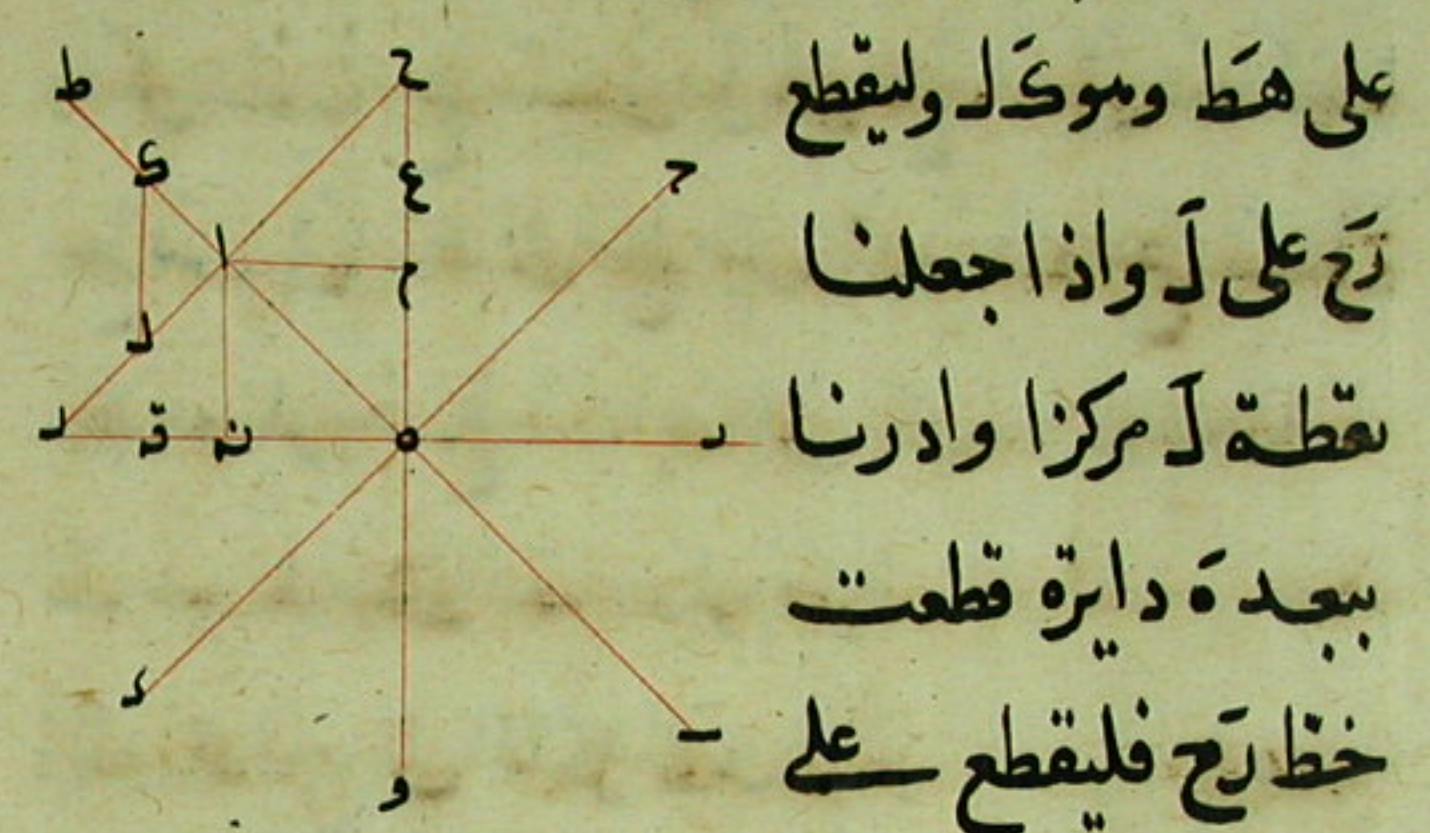 على هط وهو ك ل وليقطع
زح على ل واذا جعلنا
نقطة ل مركزا وادرنا
ببعد ه دايرة قطعت
خط زح فليقطع على
ط
ح
ك
ع
ح
ا
م
ل
ن
ه
د
و